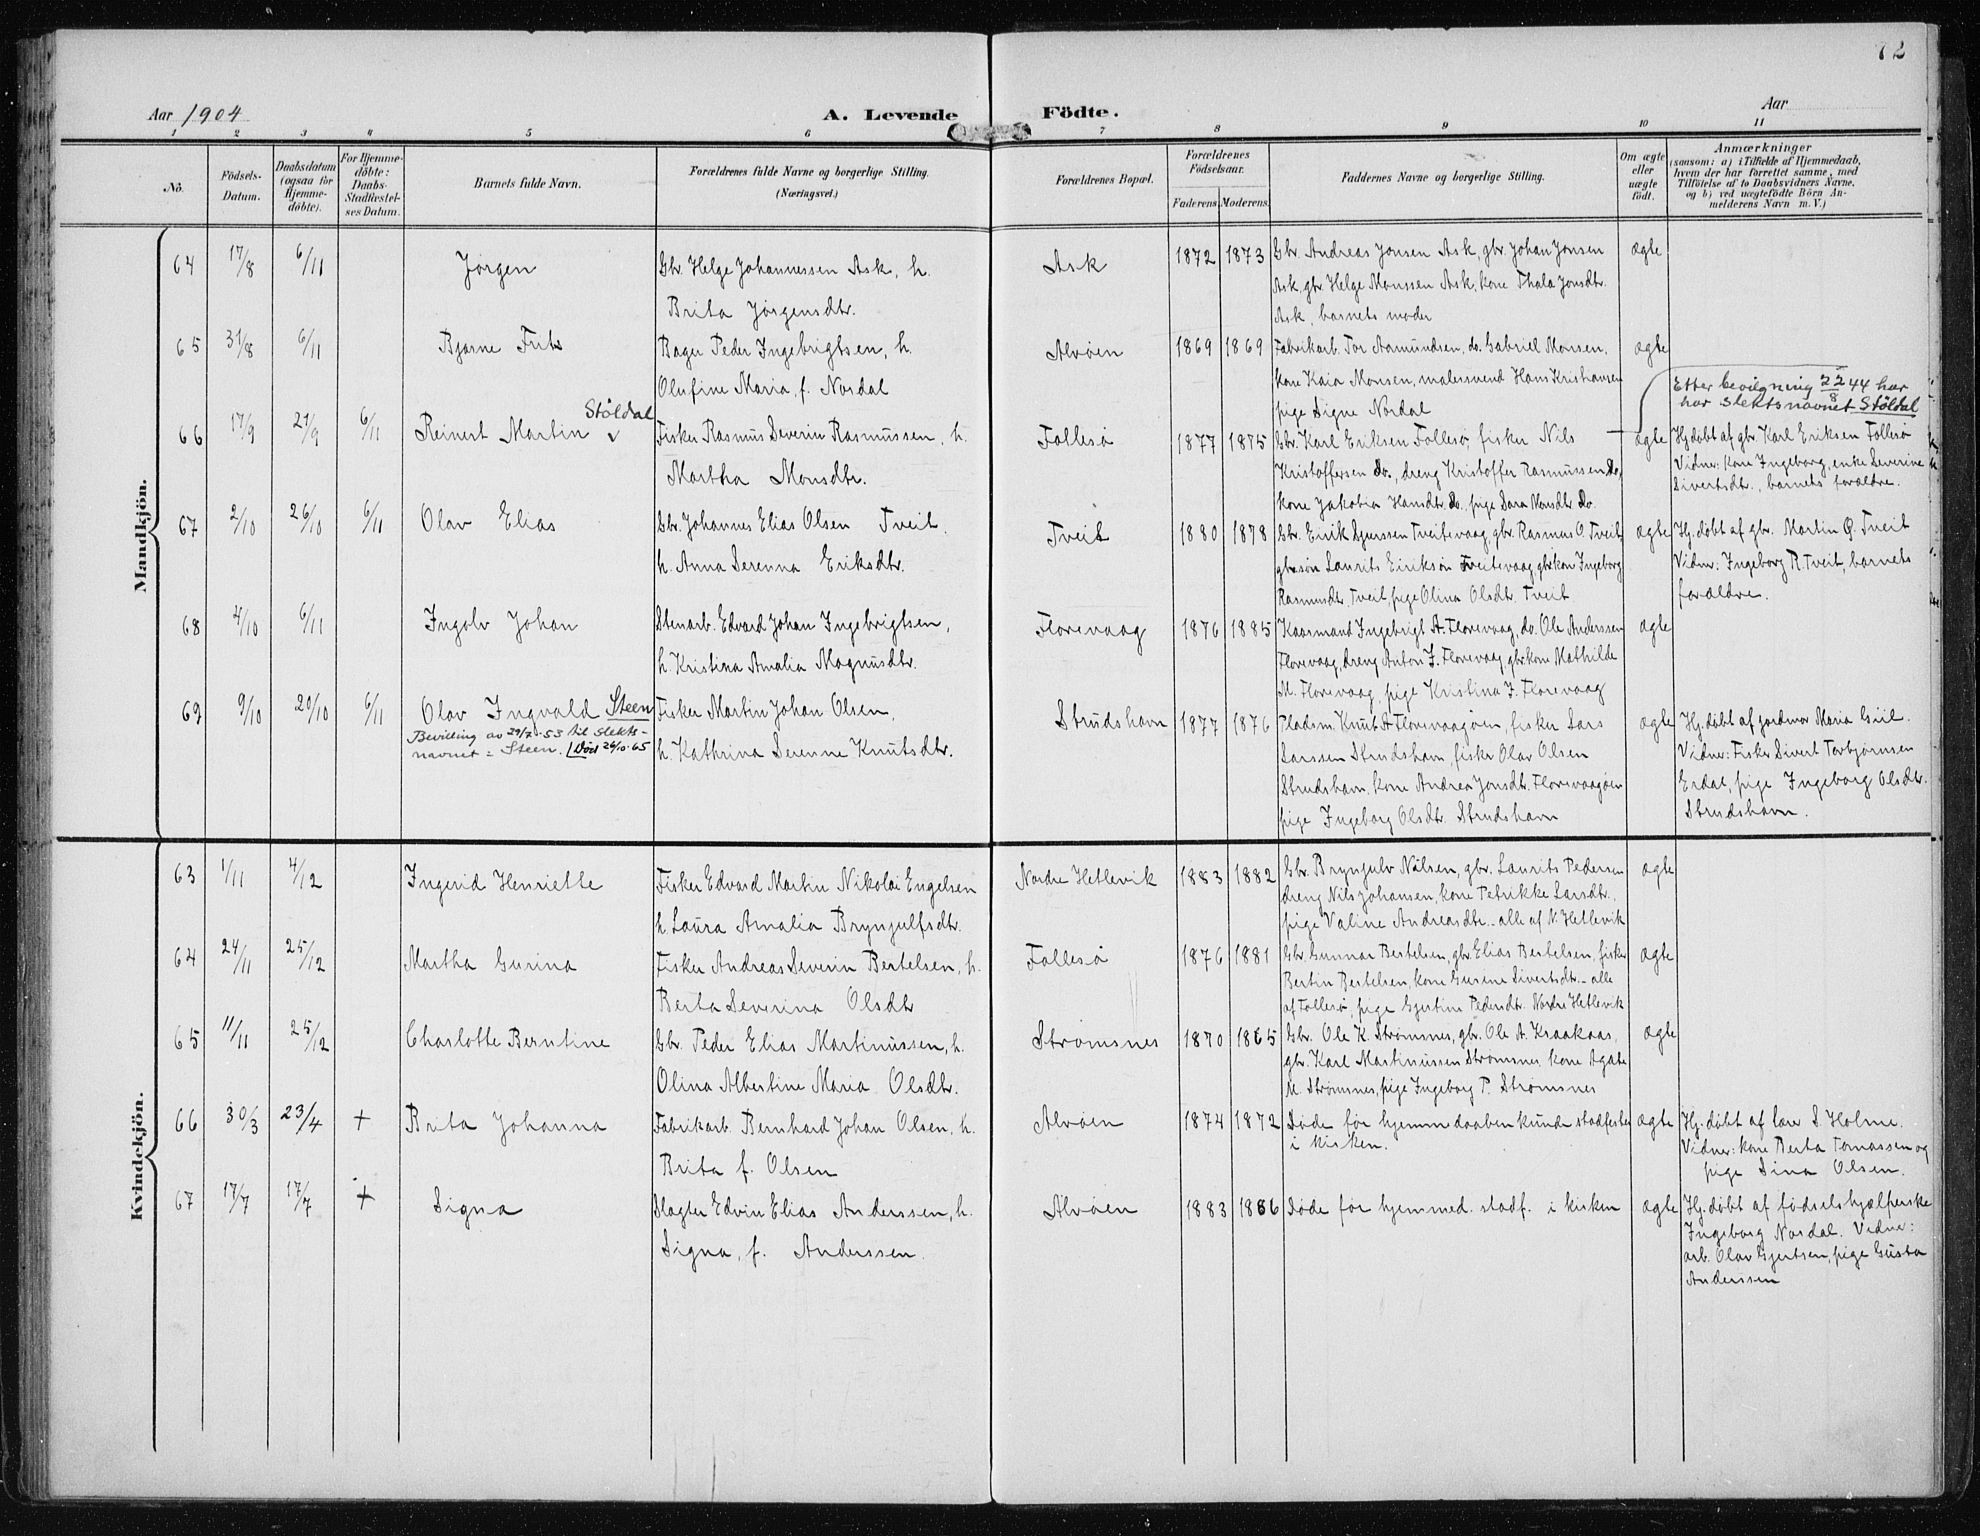 72
Aar 1904
A. Levende Födte.
Aar
1 2 3 4 5 6 7 8 9 10 11
No.
Födsels-Datum.
Daabsdatum (ogsaa for Hjemme-döbte).
For Hjemme-döbte: Daabs-Stadfæstel-ses Datum.
Barnets fulde Navn.
Forældrenes fulde Navne og borgerlige Stilling. (Næringsvei.)
Forældrenes Bopæl.
Forældrenes Födselsaar.
Faderens. Moderens.
Faddernes Navne og borgerlige Stilling.
Om ægte eller uægte födt.
Anmærkninger
(saasom: a) i Tilfælde af Hjemmedaab,
hvem der har forrettet samme, med
Tilföielse af to Daabsvidners Navne,
og b) ved uægtefödte Börn An-
melderens Navn m. V.)
Mandkjön.
64 17/8 6/11 Jørgen
Gbr. Helge Johannessen Ask, h.
Brita Jørgensdtr.
Ask 1872 1873
Gbr. Andreas Jonsen Ask, gbr. Johan Jonsen
Ask, gbr. Helge Monssen Ask, kone Thala Jonsdtr.
Ask, barnets moder
ægte
65 31/8 6/11 Bjarne Frits
Bager Peder Ingebrigtsen, h.
Olufine Maria, f. Nordal
Alvøen 1869 1869
Fabrikarb. Tor Aamundsen, do. Gabriel Monsen,
kone Kaia Monsen, malersvend Hans Kristiansen
pige Signe Nordal
ægte
Etter bevilgning 22/8 44 har
har slektsnavnet Stöldal
66 17/9 21/9 6/11 Reinert Martin Stöldal
Fisker Rasmus Severin Rasmussen, h.
Martha Monsdtr.
Follesø 1877 1875
Gbr. Karl Eriksen Follesø, fisker Nils
Kristoffersen do., dreng Kristoffer Rasmussen do,
kone Jakobia Hansdtr. do., pige Sara Monsdtr. do.
ægte
Hj. døbt af gbr. Karl Eriksen Follesø
Vidner: kone Ingeborg, enke Severine
Sivertsdtr., barnets forældre.
67 2/10 26/10 6/11 Olav Elias
Gbr. Johannes Elias Olsen Tveit.
h. Anna Serenna Eriksdtr.
Tveit 1880 1878
Gbr. Erik Sjurssen Tveitevaag, gbr. Rasmus O. Tveit
gbrsøn Laurits Eirikson Tveitevaag, gbrkone Ingeborg
Rasmusdtr. Tveit, pige Olina Olsdtr. Tveit
ægte
Hj. døbt af gbr. Martin O. Tveit
Vidner: Ingeborg R. Tveit, barnets
forældre.
68 4/10 6/11 Ingolv Johan
Stenarb. Edvard Johan Ingebrigtsen,
h. Kristina Amalia Magnusdtr.
Florevaag 1876 1885
Kaarmand Ingebrigt A. Florevaag, do. Ole Anderssen
Florevaag, dreng Anton J. Florevaag, gbrkone Mathilde
M. Florevaag, pige Kristina J. Florevaag
ægte
69 9/10 20/10 6/11 Olav Ingvald Steen
Bevilling av 29/7-53 til slekts-
navnet = Steen. Død 26/10-65
Fisker Martin Johan Olsen,
h. Kathrina Serenne Knutsdtr.
Strudshavn 1877 1876
Pladsm. Knut A Florevaagøen, fisker Lars
Larssen Strudshavn, fisker Olav Olsen
Strudshavn, kone Andrea Jonsdtr. Florevaagøen
pige Ingeborg Olsdtr. Strudshavn
ægte
Hj. døbt af jordmor Maria Giil.
Vidner: Fisker Sivert Torbjørnsen
Erdal, pige Ingeborg Olsdtr.
Strudshavn.
Kvindekjön.
63 1/11 4/12 Ingerid Henriette
Fisker Edvard Martin Nikolai Engelsen
h. Laura Amalia Brynjulfsdtr.
Nordre Hetlevik 1883 1882
Gbr. Brynjulv Nilsen, gbr. Laurits Pedersen
dreng Nils Johansen, kone Petrikke Larsdtr.,
pige Valine Andreasdtr. - alle af N. Hetlevik
ægte
64 24/11 25/12 Martha Gurina
Fisker Andreas Severin Bertelsen, h.
Berta Severina Olsdtr
Follesø 1876 1881
Gbr. Gunnar Bertelsen, gbr. Elias Bertelsen, fisker
Bertin Bertelsen, kone Gurine Sivertsdtr. - alle
af Follesø, pige Gjertine Pedersdtr. Nordre Hetlevik
ægte
65 11/11 25/12 Charlotte Berntine
Gbr. Peder Elias Martinussen, h.
Olina Albertine Maria Olsdtr.
Strømsnes 1870 1865
Gbr. Ole K. Strømsnes, gbr. Ole A. Kraakaas,
gbr. Karl Martinussen Strømsnes, kone Agate
M. Strømsnes, pige Ingeborg P. Strømsnes
ægte
66 30/3 23/4 + Brita Johanna
Fabrikarb. Bernhard Johan Olsen, h.
Brita f. Olsen
Alvøen 1874 1872
Døde før hjemmedaaben kunde stadfestes
i kirken.
ægte
Hj. døbt af lær. S. Holme.
Vidner: kone Berta Tomassen og
pige Sina Olsen.
67 17/7 17/7 + Signa
Slagter Edvin Elias Anderssen, h.
Signa, f. Anderssen.
Alvøen 1883 1886
Døde før hjemmed. stadf. i kirken
ægte
Hj. døbt af fødselshjælperske
Ingeborg Nordal. Vidner:
arb. Olav Gjertsen, pige Gusta
Anderssen